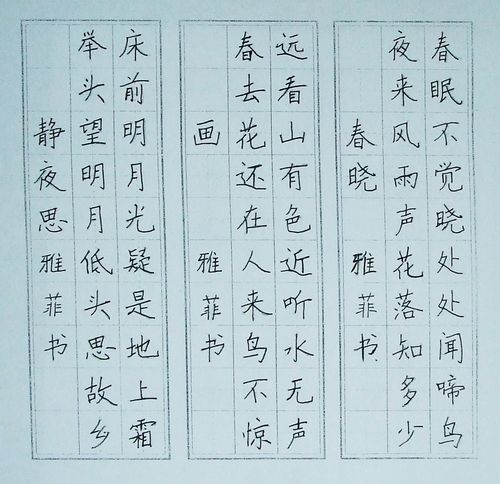 春眠不觉晓处处闻啼鸟
夜来风雨声花落知多少
春晓 雅菲书
远看山有色近听水无声
春去花还在人来鸟不惊
画 雅菲书
床前明月光疑是地上霜
举头望明月低头思故乡
静夜思雅菲书